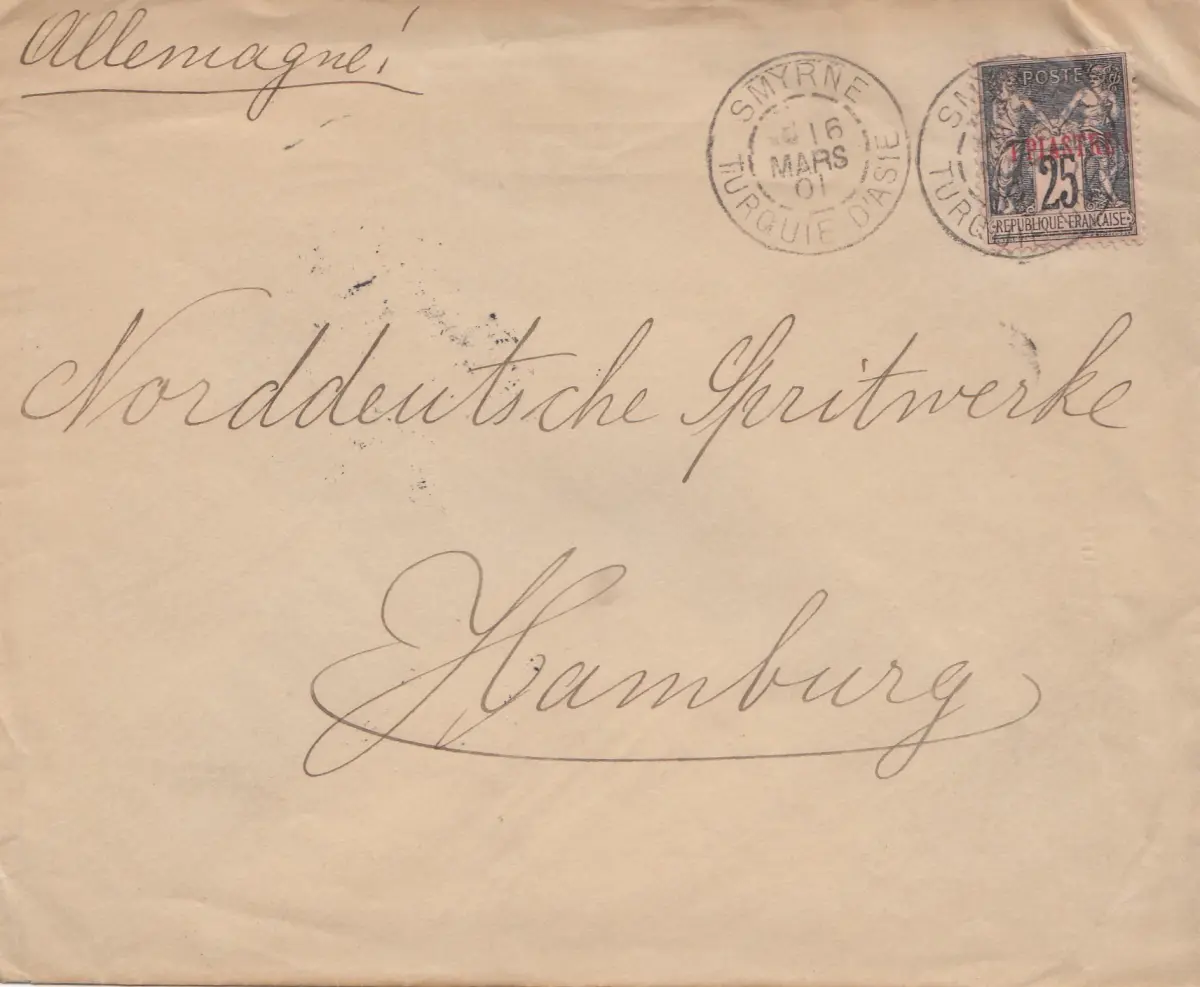 Allemagne!
SMYRNE
16
MARS
01
TURQUIE D'ASIE
POSTE
1 PIASTRE
25
REPUBLIQUE FRANÇAISE
Norddeutsche Spritwerke
Hamburg